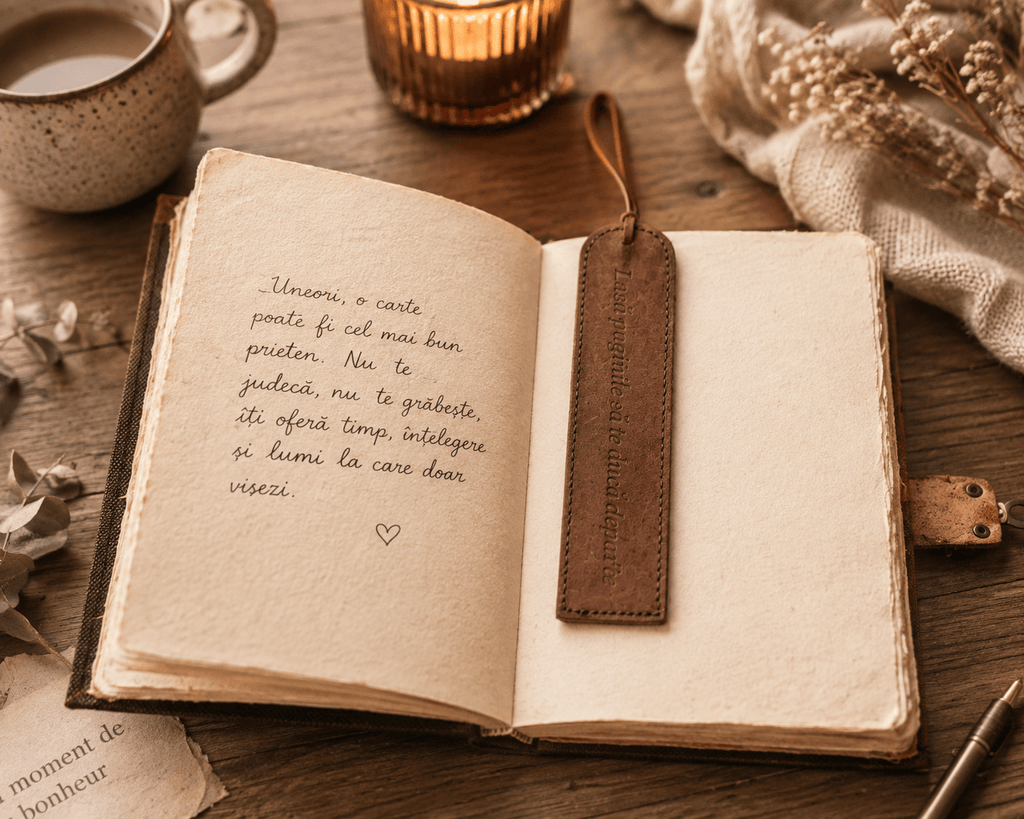 Uneori, o carte
poate fi cel mai bun
prieten. Nu te
judecă, nu te grăbește,
îți oferă timp, înțelegere
și lumi la care doar
visezi.
Lasă paginile să te ducă departe
moment de
bonheur